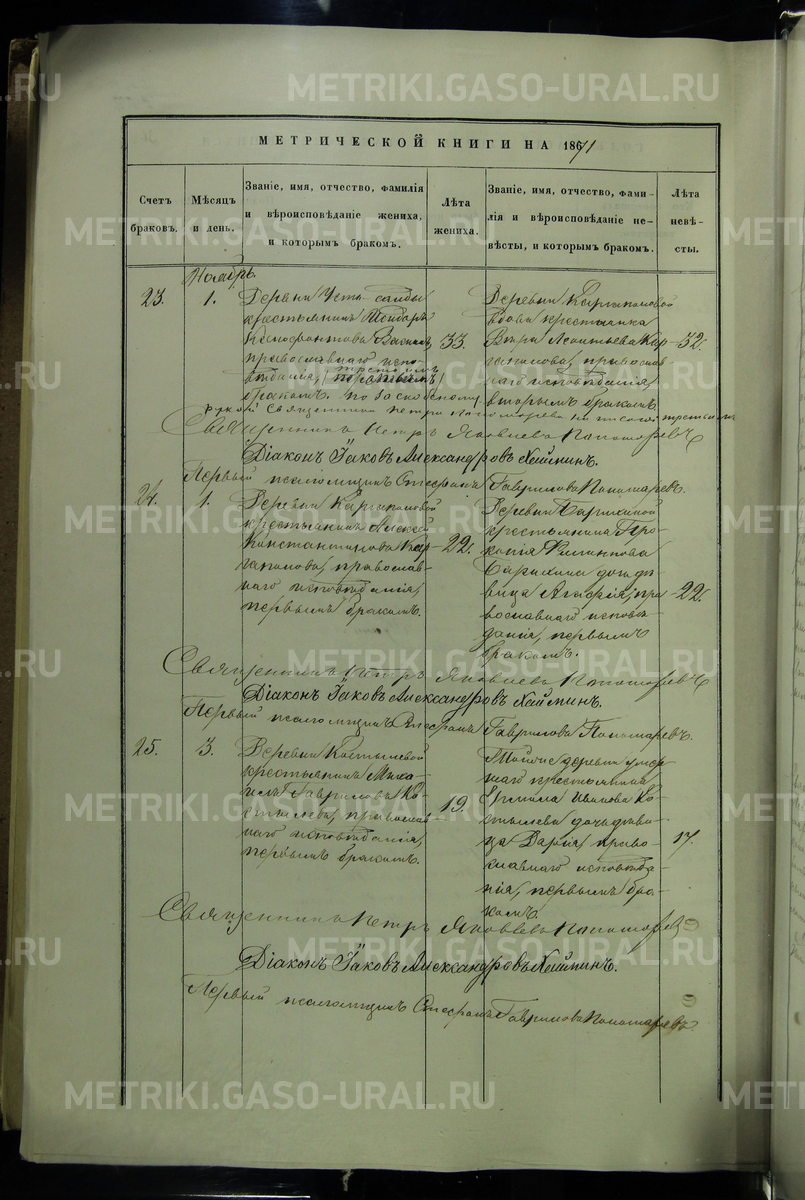 МЕТРИЧЕСКОЙ КНИГИ НА 1871
Счетъ браковъ.
Мѣсяцъ и день.
Званіе, имя, отчество, фамилія
и вѣроисповѣданіе жениха,
и которымъ бракомъ.
Лѣта жениха.
Званіе, имя, отчество, фами-
лія и вѣроисповѣданіе не-
вѣсты, и которымъ бракомъ.
Лѣта невѣ-
сты.
Ноабрь
23.
1.
Деревни Усть-
крестьянинъ
православнаго испо-
вѣданія, третьимъ
бракомъ.
33.
Деревни Каргаполовой
вдова крестьянка
Вѣра Леонтьева Кар-
гаполова, православ-
наго исповѣданія,
вторымъ бракомъ.
32.
рукой Священника Петра Пономарева третьимъ
Священникъ Петръ Яковлевъ Пономаревъ
Діаконъ Іаковъ Александровъ Хлѣпинъ.
Первый псаломщикъ Стефанъ Гавриловъ Пономаревъ.
24.
1.
Деревни Каргаполовой
крестьянинъ Алексей
Константиновъ Кар-
гаполовъ, православ-
наго исповѣданія,
первымъ бракомъ.
22.
Деревни
крестьянина Про-
копія Филиппова
дочь дѣ-
вица Агафія, пра
вославнаго исповѣ-
данія, первымъ
бракомъ.
22.
Священникъ Петръ Яковлевъ Пономаревъ
Діаконъ Іаковъ Александровъ Хлѣпинъ.
Первый псаломщикъ Стефанъ Гавриловъ Пономаревъ.
25.
3.
Деревни Костылевой
крестьянинъ Миха-
илъ Гавриловъ Ко-
стылевъ, православ-
наго исповѣданія,
первымъ бракомъ.
19.
Тойже деревни умер-
шаго крестьянина
Ермила Иванова Ко-
стылева дочь дѣви-
ца Дарія, право-
славнаго исповѣда-
нія, первымъ бра-
комъ.
17.
Священникъ Петръ Яковлевъ Пономаревъ
Діаконъ Іаковъ Александровъ Хлѣпинъ.
Первый псаломщикъ Стефанъ Гавриловъ Пономаревъ.
METRIKI.GASO-URAL.RU